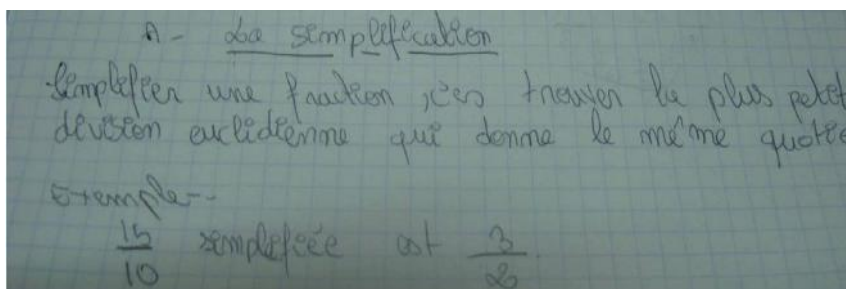 A - La simplification
Simplifier une fraction , c'es trouver la plus petit
division euclidienne qui donne le même quotie
Exemple--
15/10 simplifiée est 3/2